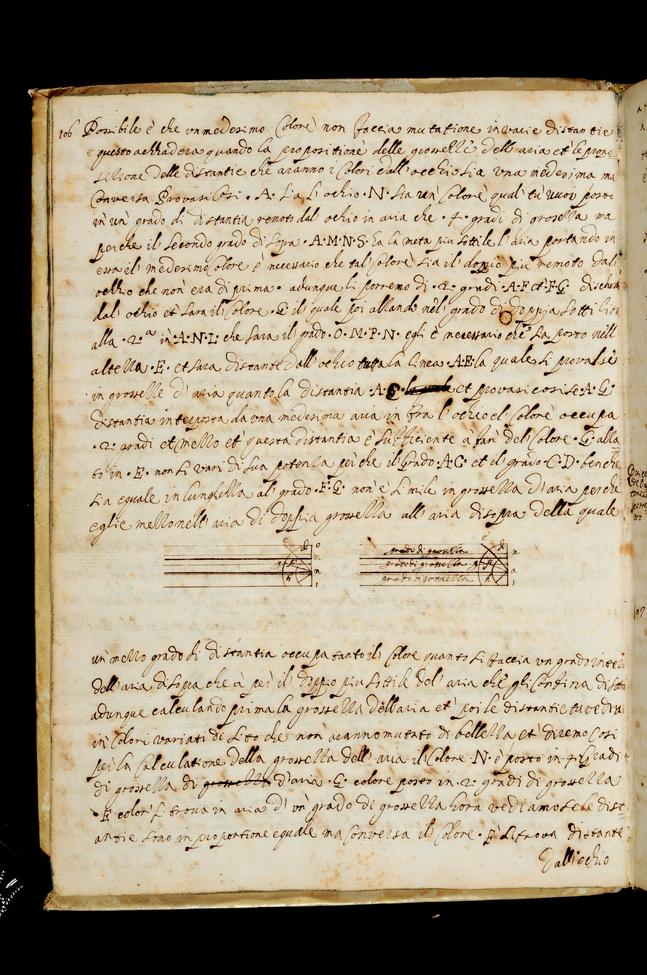 106 Possibile è che un medesimo Colore non faccia mutatione in varie distantie
e questo achadera quando la propositione delle grosselle dell'aria et le prop
sitione delle distantie che aranno i Colori dall'occhio sia una medesima ma
Conversa Provasi Cosi · A · sia l'ochio · N · sia un Colore qual tu vuoi posto
in un' grado di distantia remoto dal ochio in aria che · 4 · gradi di grossella ma
perche il secondo grado di sopra · A·M·N·S· Ea la meta piu sottile l'aria portando in
essa il medesimo Colore è necessario che tal Colore sia il dopio più remoto dal
ochio che non era di prima · adunque li porremo di · 2 · gradi · A·F et F·G · discosto
dal' ochio et sara il Colore · G il quale poi allando nel grado di doppia sottil
alla · 2ª in · A·N·L che sara il grado · O·M·P·N · egli è necessario che sia posto nell
altella · E · et sara distante dall'ochio tutta la linea · AE la quale si provasi
in grosselle d'aria quanto la distantia · A·G et provasi cosi se · A·G·
distantia interposta da una medesima aria in fra l'ochio el Colore occupa
· 2 · gradi et mello et questa distantia è sufficiente a fare del Colore · G · alla
to in · E · non si vari di sua potenza perche il Grado · A·C · et il grado · C·D · benche
sia equale in lunghella al grado · F·G · non'è simile in grossella d'aria perche
eglie mello nell'aria di doppia grossella all'aria di sopra della quale
gradi di grossella
gradi di grossella
gradi di grossella
un' mello grado di distantia occupa tanto il Colore quanto si faccia un grado
dell'aria di sopra che è per il doppio piu sottile del'aria che gli Confina di
adunque calculando prima la grossella dell'aria et poi le distantie
in' Colori variati di sito che non aranno mutato di bellella et diremo Cosi
per la Calculatione della grossella dell'aria il Colore · N · è posto in · 4 · Gradi
di grossella di d'aria · G · colore posto in · 2 · gradi di grossella
· E color' si trova in aria d'un' grado di grossella hora vediamo se le dist
antie sono in proportione equale ma Conversa il Colore · E si trova distante
dall'ochio